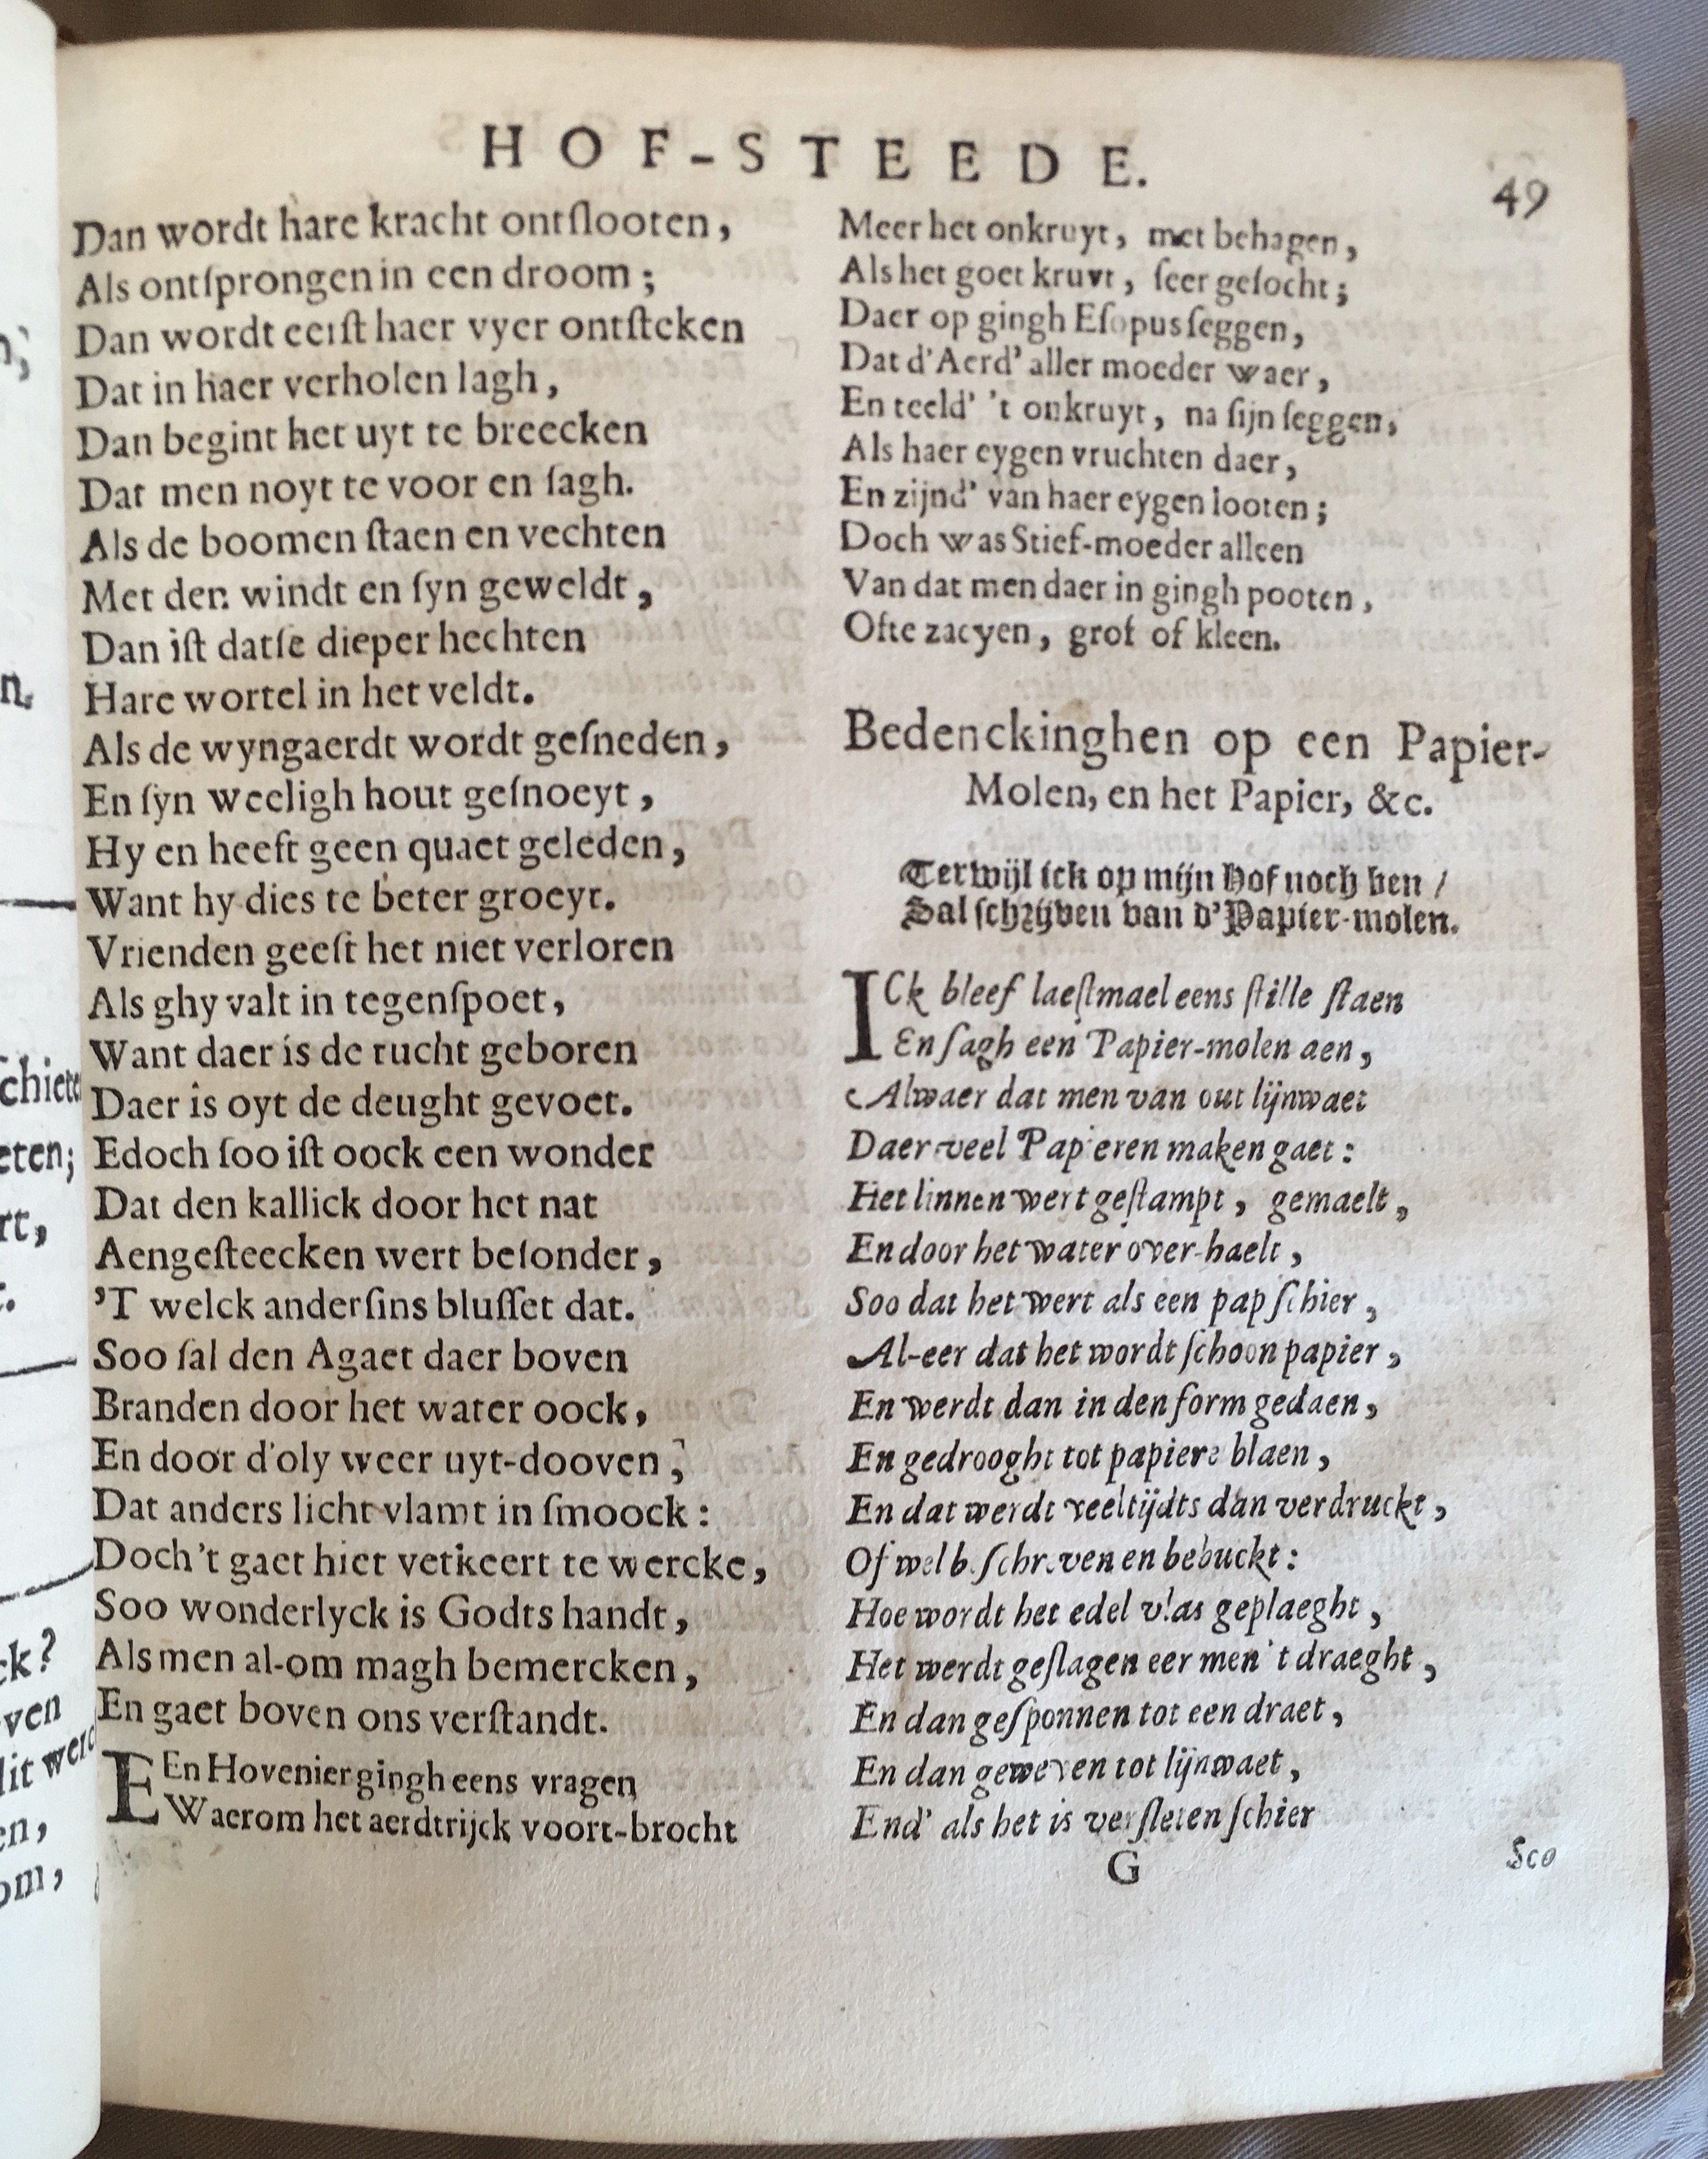 HOF-STEEDE.
49
Dan wordt hare kracht ontſlooten,
Als ontſprongen in een droom;
Dan wordt eerſt haer vyer ontſteken
Dat in haer verholen lagh,
Dan begint het uyt te breecken
Dat men noyt te voor en ſagh.
Als de boomen ſtaen en vechten
Met den windt en ſyn geweldt,
Dan iſt datſe dieper hechten
Hare wortel in het veldt.
Als de wyngaerdt wordt geſneden,
En ſyn weeligh hout geſnoeyt,
Hy en heeft geen quaet geleden,
Want hy dies te beter groeyt.
Vrienden geeft het niet verloren
Als ghy valt in tegenſpoet,
Want daer is de tucht geboren
Daer is oyt de deught gevoet.
Edoch ſoo iſt oock een wonder
Dat den kallick door het nat
Aengeſteecken wert beſonder,
'T welck anderſins bluſſet dat.
Soo ſal den Agaet daer boven
Branden door het water oock,
En door d'oly weer uyt-dooven,
Dat anders licht vlamt in ſmoock:
Doch 't gaet hier verkeert te wercke,
Soo wonderlyck is Godts handt,
Als men al-om magh bemercken,
En gaet boven ons verſtandt.
EEn Hovenier gingh eens vragen
Waerom het aerdtrijck voort-brocht
Meer het onkruyt, met behagen,
Als het goet kruyt, ſeer geſocht;
Daer op gingh Eſopus ſeggen,
Dat d'Aerd' aller moeder waer,
En teeld' 't onkruyt, na ſijn ſeggen,
Als haer eygen vruchten daer,
En zijnd' van haer eygen looten;
Doch was Stief-moeder alleen
Van dat men daer in gingh pooten,
Ofte zaeyen, grof of kleen.
Bedenckinghen op een Papier-
Molen, en het Papier, &c.
Terwijl ick op mijn Hof noch ben /
Sal ſchrijven van d'Papier-molen.
ICk bleef laeſtmael eens ſtille ſtaen
En ſagh een Papier-molen aen,
Alwaer dat men van out lijnwaet
Daer veel Papieren maken gaet:
Het linnen wert geſtampt, gemaelt,
En door het water over-haelt,
Soo dat het wert als een pap ſchier,
Al-eer dat het wordt ſchoon papier,
En werdt dan in den form gedaen,
En gedrooght tot papiere blaen,
En dat werdt veeltijdts dan verdruckt,
Of wel b.ſchreven en bebuckt:
Hoe wordt het edel vlas geplaeght,
Het werdt geſlagen eer men 't draeght,
En dan geſponnen tot een draet,
En dan geweven tot lijnwaet,
End' als het is verſleten ſchier
G
Soo